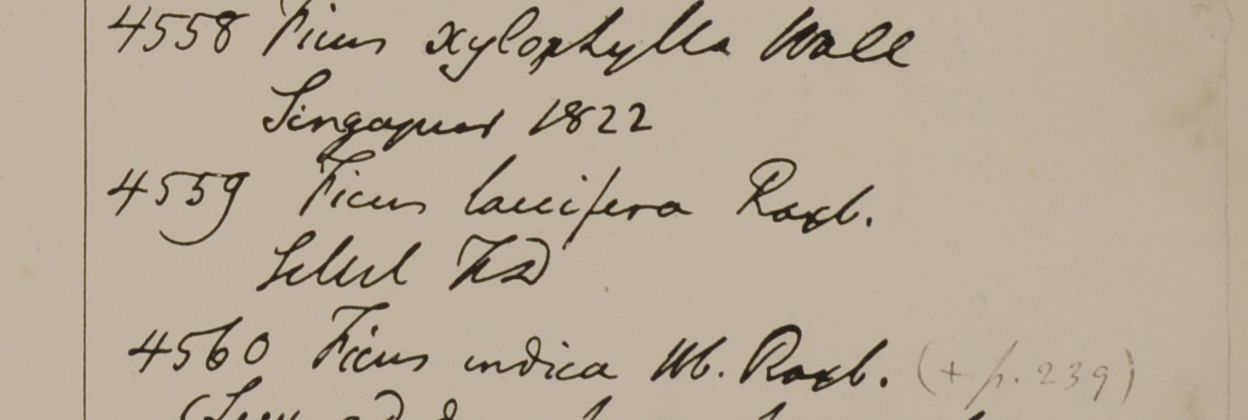 4558 Ficus xylophylla Wall
Singapur 1822
4559 Ficus laccifera Roxb.
Silhet FD
4560 Ficus indica Hb. Roxb. (+ p. 239)